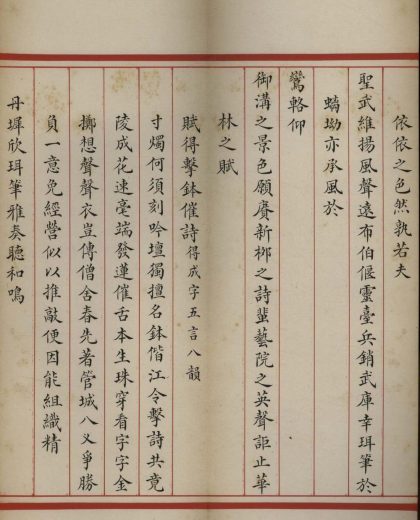 依依之色然孰若夫
聖武維揚風聲遠布伯偃靈臺兵銷武庫幸珥筆於
螭坳亦承風於
鸞輅仰
御溝之景色願賡新栁之詩蜚藝院之英聲詎止華
林之賦
賦得擊鉢催詩得成字五言八韻
寸燭何須刻吟壇獨擅名鉢偕江令擊詩共竟
陵成花速毫端發蓮催舌本生珠穿看字字金
擲想聲聲衣豈傳僧舍春先著管城八叉爭勝
負一意免經營似以推敲便因能組織精
丹墀欣珥筆雅奏聽和鳴